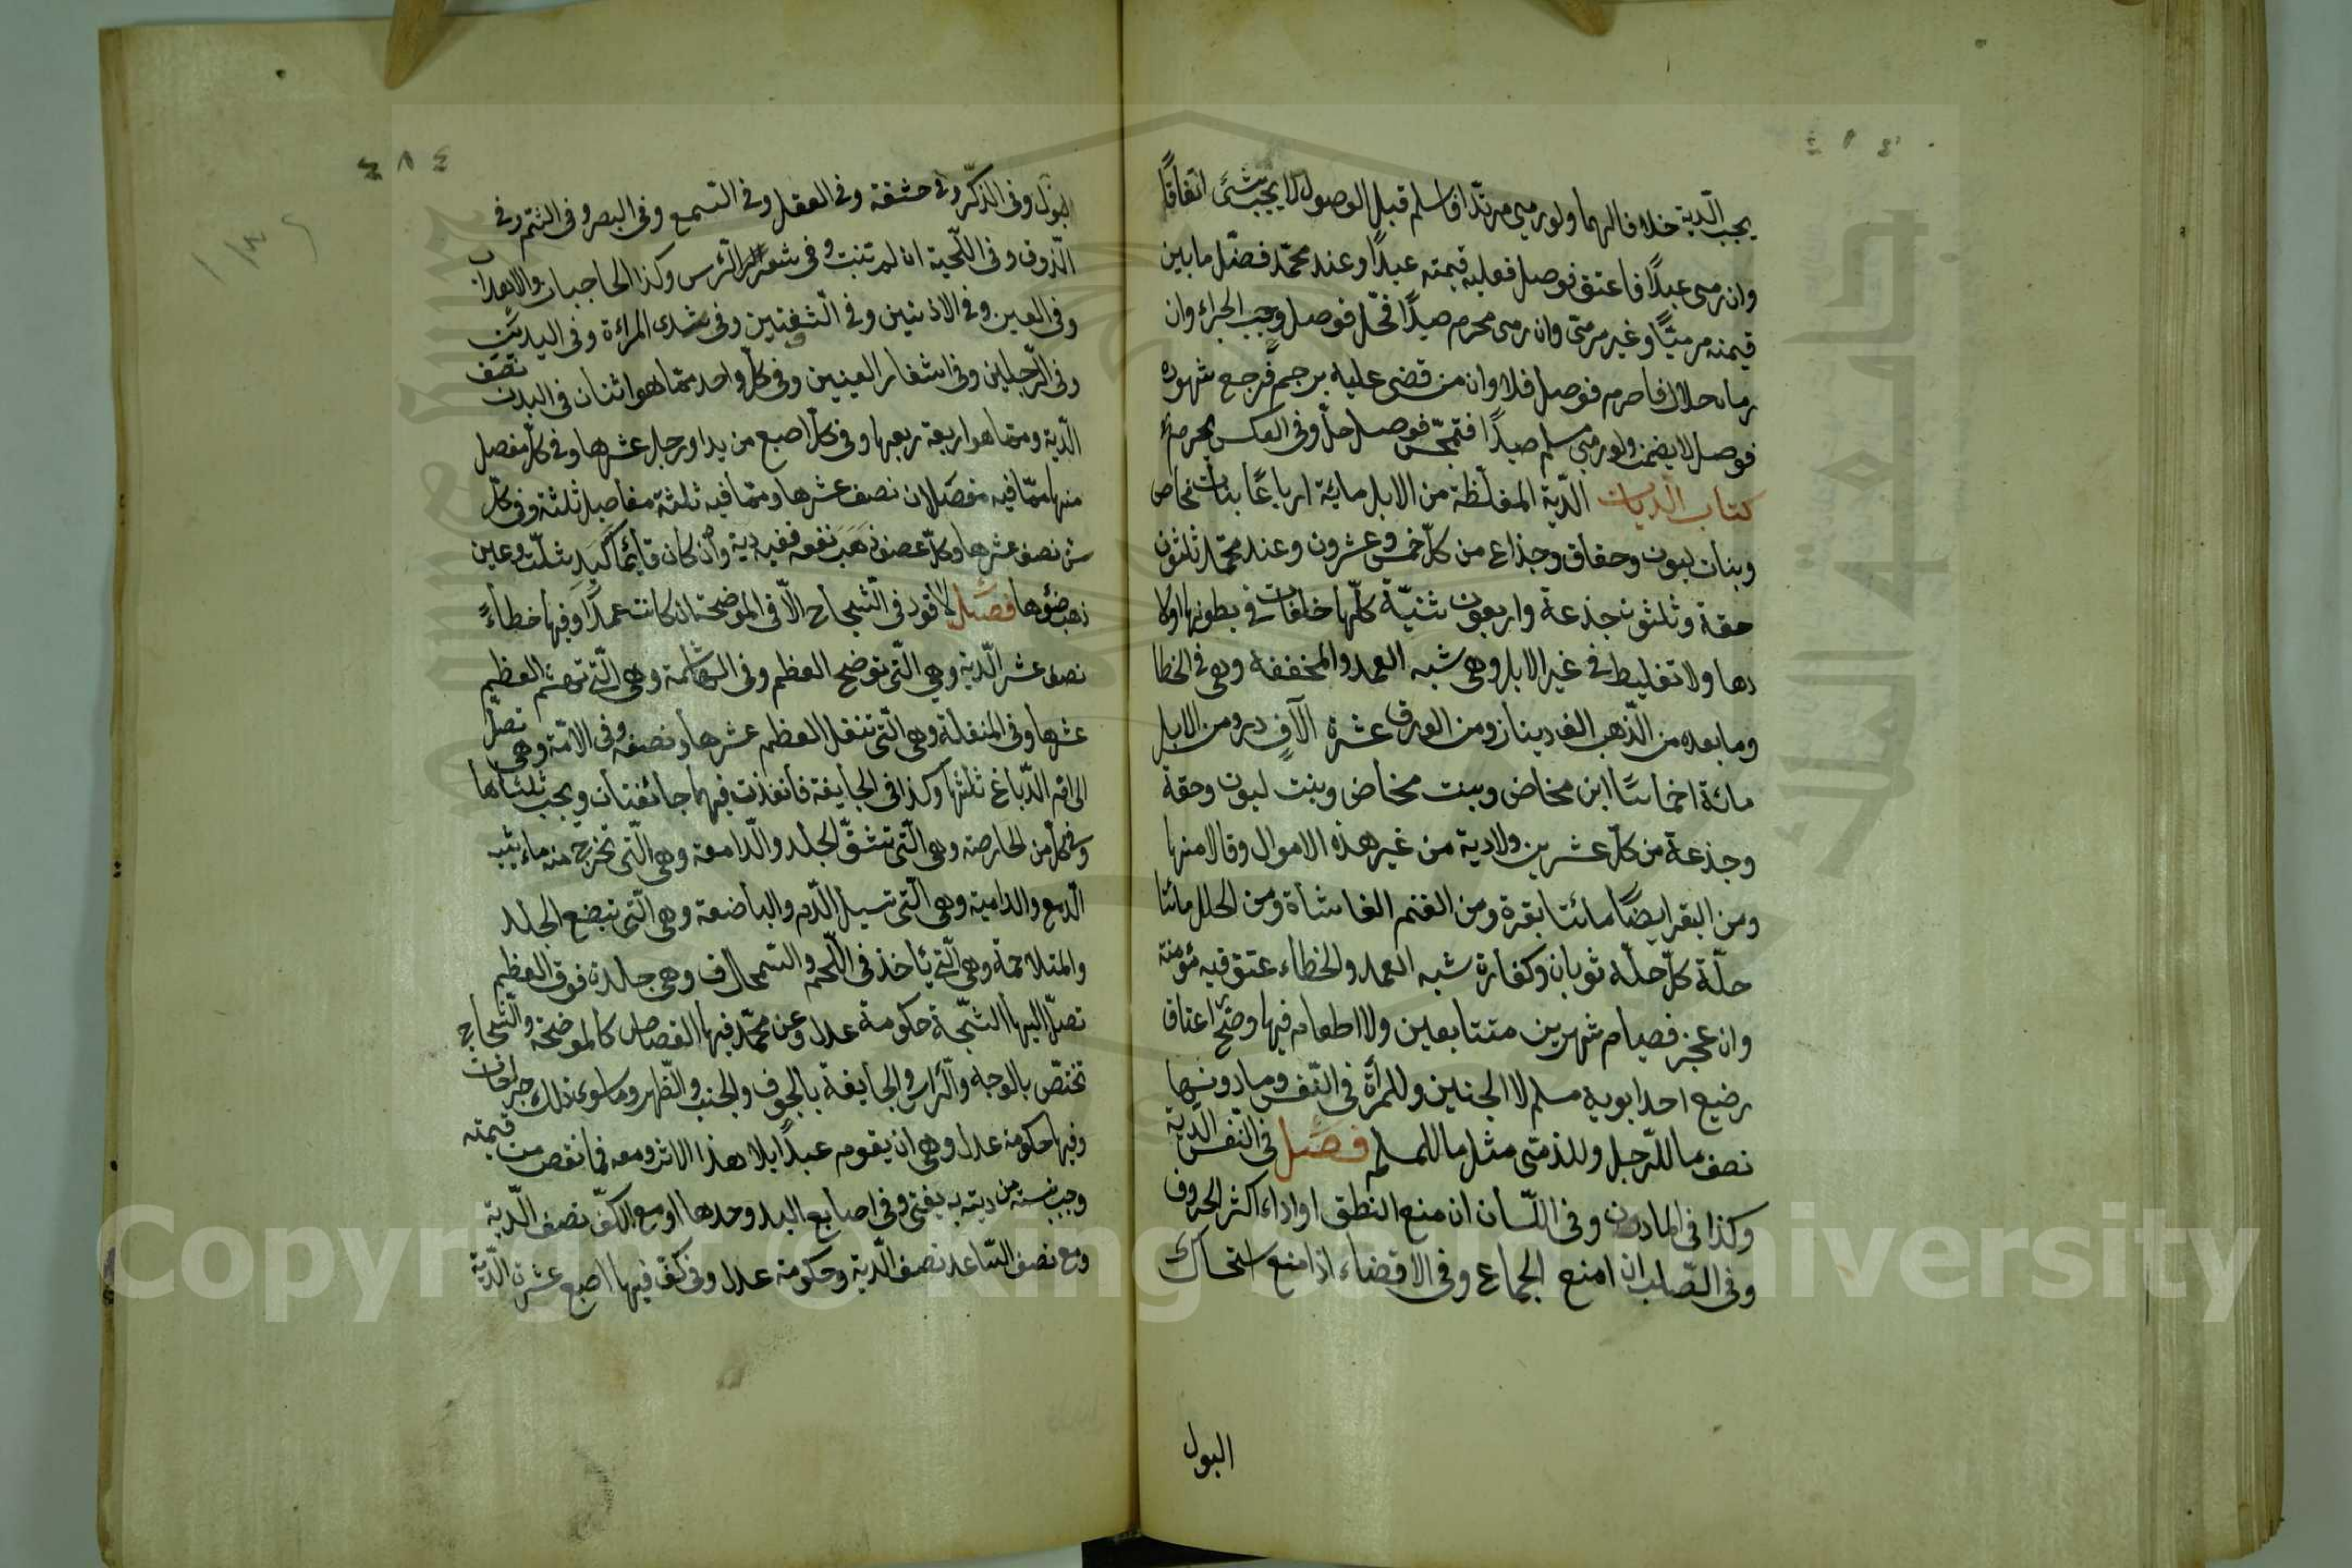 يجب الّدية خلافا لهما ولو رمى مرتدّا فاسلم قبل الوصول لا يجب شئ اتفاقًا
وان رمى عبدًا فاعتق فوصل فعليه قيمته عبدًا وعند محمّد فضل ما بين
قيمته مرميّا وغير مرمىّ وان رمى محرم صيدًا فحلّ فوصل وجب الجزاء وان
رماه حلال فاحرم فوصل فلا وان من قضى عليه برجم فرجع شهوده
فوصل لا يضمن ولو رمى مسلم صيدًا فتمجّس فوصل حلّ وفى العكس يحرم
كتاب الّديات الّدية المغلّظة من الابل مائة ارباعًا بنات مخاض
وبنات لبون وحقاق وجذاع من كلّ خمس وعشرون وعند محمّد ثلثون
حقة وثلثون جذعة واربعون ثنيّة كلّها خلفات فى بطونها اولا
دها ولا تغليط فى غير الابل وهى شبه العمد والمخففة وهى فى الخطا
وما بعده من الّذهب الف دينار ومن الورق عشرة آلاف درو من الابل
مائة اخماسًا ابن مخاض وبنت مخاض وبنت لبون وحقة
وجذعة من كلّ عشرين ولا دية من غير هذه الاموال وقالا منها
ومن البقر ايضًا مائتا بقرة ومن الغنم الفا شاة ومن الحلل مائتا
حلّة كلّ حلّة ثوبان وكفارة شبه العمد والخطاء عتق قيه مؤمنة
وان عجز فصيام شهرين متتابعين ولا اطعام فيها وصّح اعتاق
رضيع احد ابويه مسلم لا الجنين وللمرأة فى النّفس وما دونها
نصف ما للرّجل وللذمّى مثل ما للمسلم فصل فى النّفس الّدية
وكذا فى المادون وفى اللّسان ان منع النطق او اداء اكثر الحروف
وفى الصّلب ان امنع الجماع وفى الاقضاء اذا منع استمساك
البول
٤٨٤
البول وفى الذكر وفى حشفة وفى العقل وفى السّمع وفى البصر وفى الشّم وفى
الّذوق وفى اللّحية ان لم تنبت وفى شعر الرّأس وكذا الحاجبان والاهداب
وفى العين وفى الاذنين وفى الّشفتين وفى ثدى المرأة وفى اليدين
وفى الرّجلين وفى اشفار العينين وفى كلّ واحد ممّا هو اثنان فى البدن نصف
الّدية وممّا هو اربعة ربعها وفى كلّ اصبع من يد او رجل عشرها وفى كلّ مفصل
منها ممّا فيه مفصلان نصف عشرها وممّا فيه ثلثة مفاصل ثلثة وفى كلّ
سن نصف عشرها وكلّ عضو ذهب نفعه ففيه دية وان كان قائمًا كيد شلّت وعين
ذهب ضؤها فصل لا قود فى الّشجاج الّا فى الموضحة ان كانت عمدًا وفيها خطأً
نصف عشر الّدية وهى الّتى توضح العظم وفى الهاشمة وهى الّتى تهشم العظم
عشرها وفى المنقلة وهى الّتى تنقل العظم عشرها ونصفه وفى الامّة وهى تصل
الى ام الدّباغ ثلثها وكذا فى الجايفة فأن نفذت فهما جائفتان ويجب ثلثاها
وفى كلّ من الحارصة وهى الّتى تشقّ الجلد والّدامعة وهى الّتى تخرج منه ماء يشبه
الّدمع والدامية وهى الّتى تسيل الّدم والباضعة وهى الّتى تبضع الجلد
والمتلاحمة وهى الّتى تأخذ فى اللّحم والسّمحاق وهى جلدة فوق العظم
تصل اليها الشّجة حكومة عدل وعن محمّد فيها القصاص كالموضحة والّشجاج
تختصّ بالوجه والرّاس والجايفة بالجوف والجنب والظهر وما سوى ذلك جراحات
وفيها حكومة عدل وهى ان يقوم عبدًا بلا هذا الاثر ومعه فما نقص من قيمته
وجب بنسبته من ديته به يفتى وفى اصابع اليد وحدها او مع الكفّ نصف الّدية
ومع نصف السّاعد نصف الّدية وحكومة عدل وفى كفّ فيها اصبع عشر الّدية